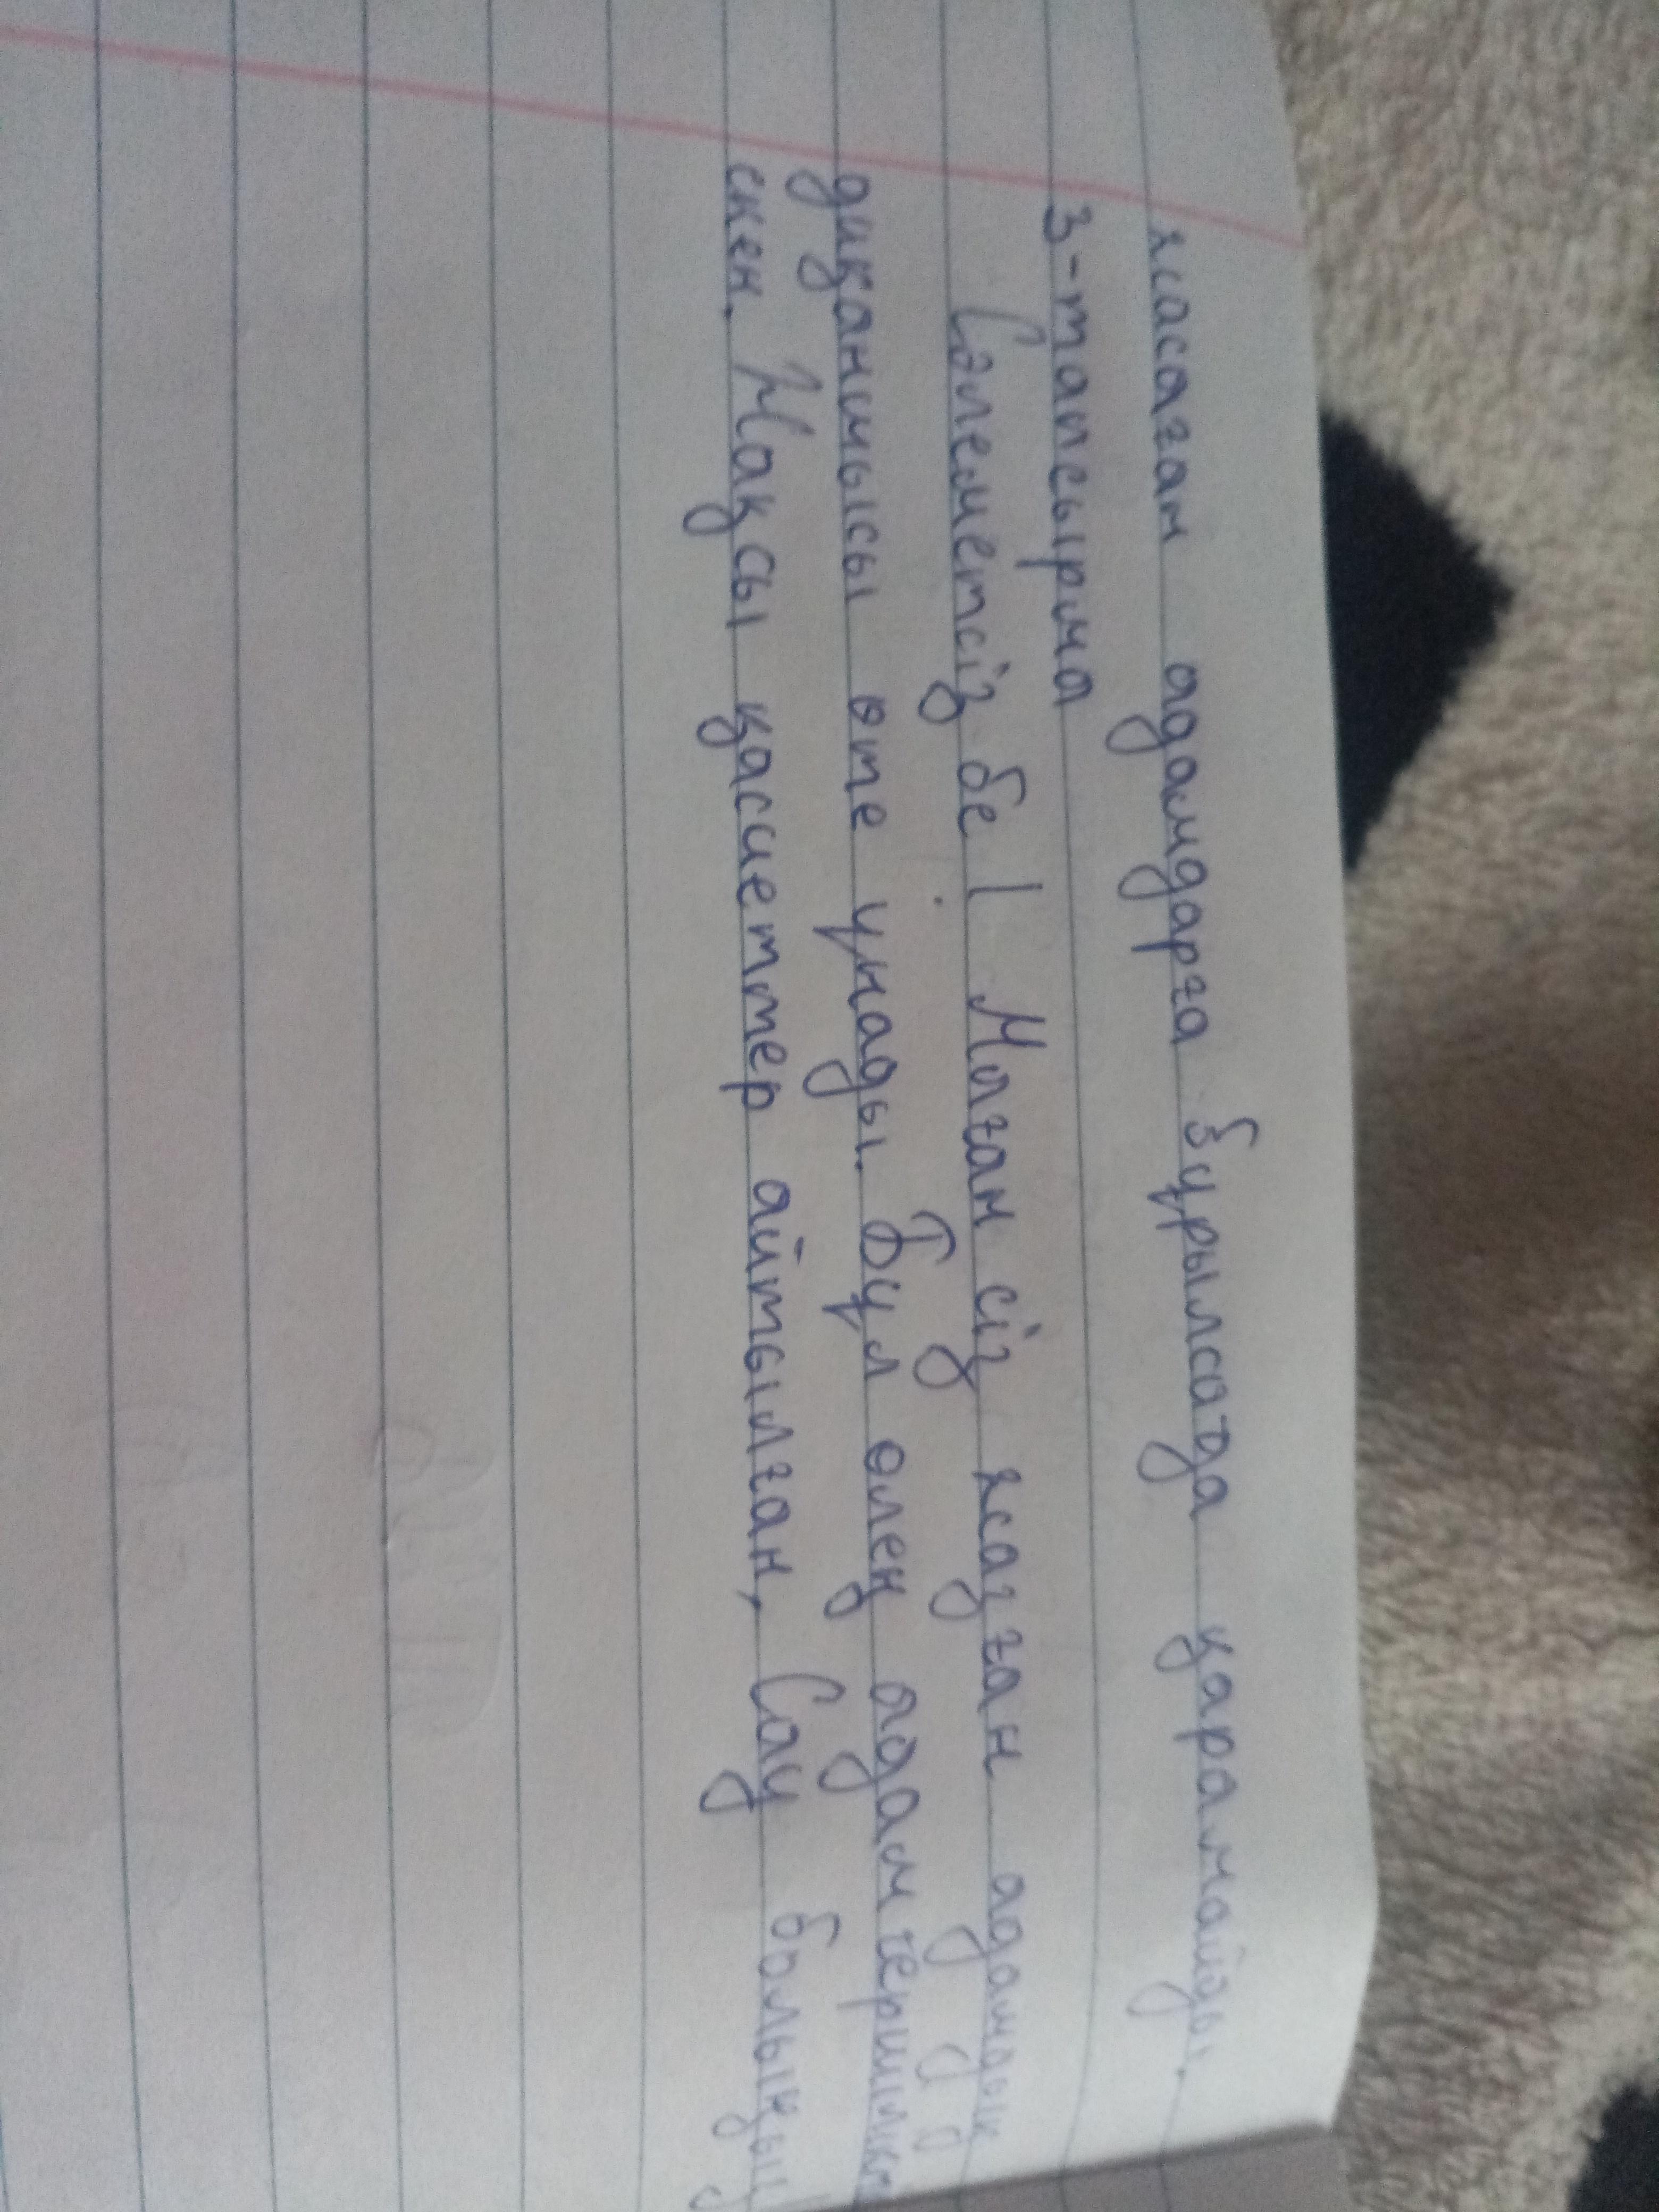 жасаған адамдарға бұрылсада қарамайды.
3-тапсырма
Сәлеметсіз бе! Маған сіз жазған адамдық
диқаншысы өте ұнады. Бұл өлең адамгершілікке
екен. Жақсы қасиеттер айтылған, Сау болыңыз